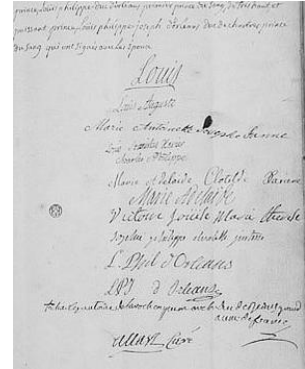 prince, Louis philippe duc d'orleans premier prince du sang, de tres haut et
puissant prince, Louis philippe joseph d'orleans duc de chartres prince
du sang qui ont signés avec les Epoux
Louis
Louis Auguste
Marie Antoinette Josepha Jeanne
Louis Stanislas Xavier
Charles Philippe
Marie Adelaide Clotilde Xaviere
Marie Adelaide
Victoire Louise Marie Therese
Sophie philippe elisabeth justine
L. Phil d'Orleans
L P J d'Orleans
Allart Curé